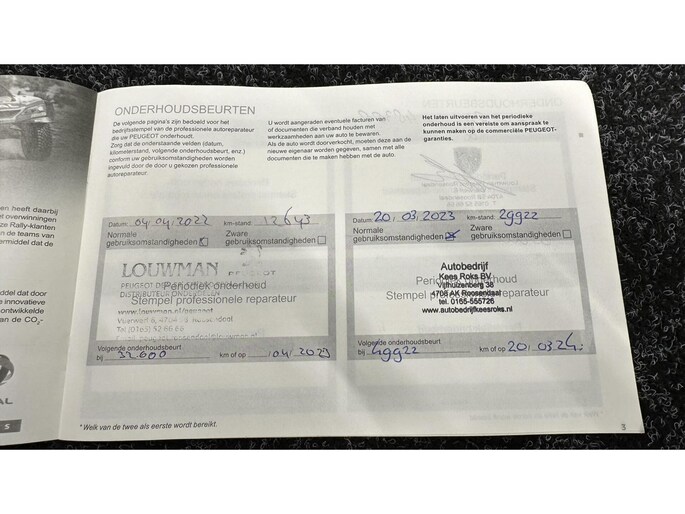 ONDERHOUDSBEURTEN
De volgende pagina's zijn bedoeld voor het
bedrijfsstempel van de professionele autoreparateur
die uw PEUGEOT onderhoudt.
Zorg dat de onderstaande velden (datum,
kilometerstand, volgende onderhoudsbeurt, enz.)
conform uw gebruiksomstandigheden worden
ingevuld door de door u gekozen professionele
autoreparateur.
U wordt aangeraden eventuele facturen van
of documenten die verband houden met
werkzaamheden aan uw auto te bewaren.
Als de auto wordt doorverkocht, moeten deze aan de
nieuwe eigenaar worden gegeven, samen met alle
documenten die te maken hebben met de auto.
Het laten uitvoeren van het periodieke
onderhoud is een vereiste om aanspraak te
kunnen maken op de commerciële PEUGEOT-
garanties.
en heeft daarbij
overwinningen
ze Rally-klanten
n de teams van
ermiddel dat de
ddel dat door
e innovatieve
ontwikkelde
an de CO₂-
AL
5
Datum: 04/04/2022 km-stand: 12643
Normale gebruiksomstandigheden
Zware gebruiksomstandigheden
LOUWMAN PEUGEOT
Periodiek onderhoud
Stempel professionele reparateur
Volgende onderhoudsbeurt
bij 32.600 km of op /04/2023
Datum: 20/03/2023 km-stand: 29922
Normale gebruiksomstandigheden
Zware gebruiksomstandigheden
Autobedrijf
Kees Roks BV
Vijfhuizenberg 38
4708 AK Roosendaal
tel. 0165-555726
www.autobedrijfkeesroks.nl
Periodiek onderhoud
Stempel professionele reparateur
Volgende onderhoudsbeurt
bij 49922 km of op 20/03/24
* Welk van de twee als eerste wordt bereikt.
3